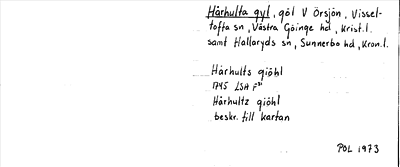 Hårhulta gyl, göl V Örsjön, Vissel-
tofta sn, Västra Göinge hd, Krist.l.
samt Hallaryds sn, Sunnerbo hd, Kron.l.
Hårhults giöhl
1745 LSA F
Hårhultz giöhl
beskr. till kartan
POL 1973